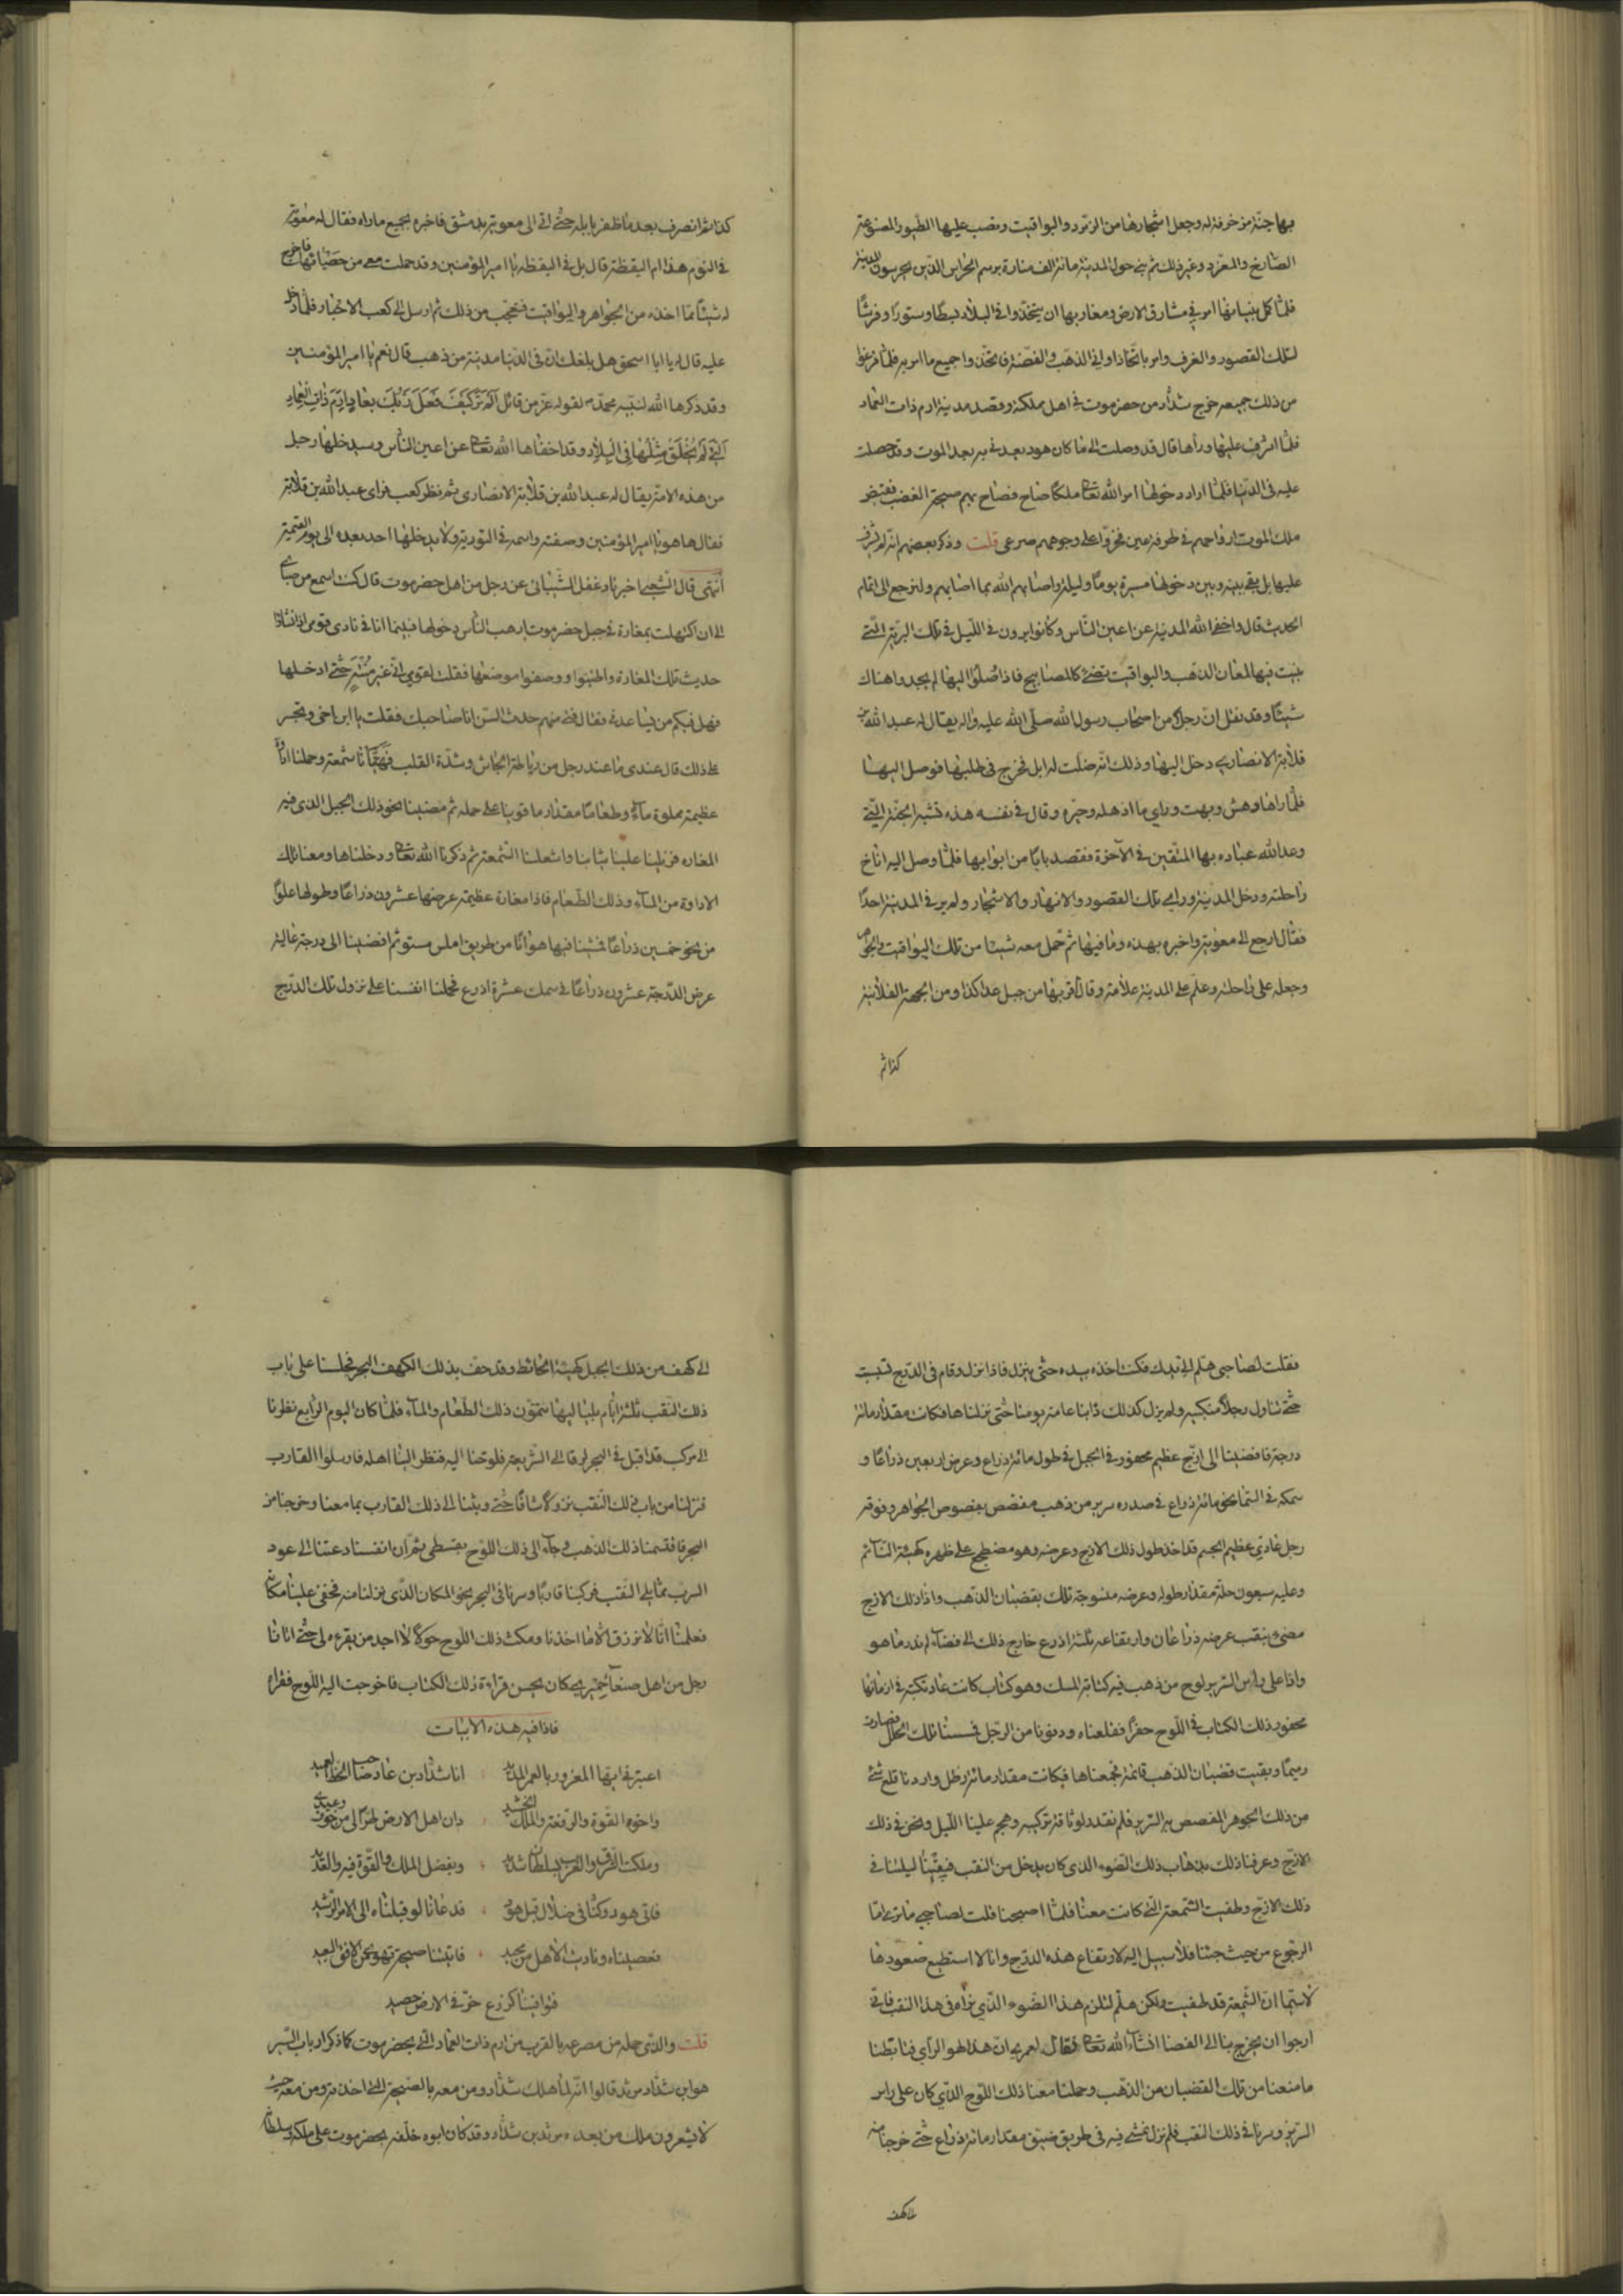 بها جنّة مزخرفة له وجعل اشجارها من الزبرجد والیواقیت ونصب علیها الطیور المصنوعة
الصّارخ والمغرّد وغیر ذلك ثم بنی حول المدینة مائة الف منارة برسم الحرّاس الذین یحرسون المدینة
فلمّا كمل بنیانها امر فی مشارق الارض ومغاربها ان یتّخذوا فی البلاد بسطًا وستورًا وفرشًا
لتلك القصور والغرف وامر باتّخاذ اوانی الذهب والفضّة فاتّخذوا جمیع ما امر به فلمّا فرغوا
من ذلك جمیعه خرج شدّاد من حضرموت فی اهل مملكته وقصد مدینة ارم ذات العماد
فلمّا اشرف علیها ورأها قال قد وصلت الی ما كان هود یعدنی به بعد الموت وقد حصلت
علیه فی الدّنیا فلمّا اراد دخولها امر الله تعالی ملكًا صاح فصاح بهم صیحة الغضب فقبض
ملك الموت ارواحهم فی طرفة عین فخرّوا علی وجوههم صرعی قلت وذكر بعضهم انّه لم یشرف
علیها بل بقی بینه وبین دخولها مسیرة یومًا ولیلة واصابهم الله بما اصابهم ولنرجع الی اتمام
الحدیث قال واخفی الله المدینة عن اعین النّاس وكانوا یرون فی اللّیل فی تلك البرّیة الّتی
بنیت فیها لمعان الذهب والیواقیت تضئ كالمصابیح فاذا وصلوا الیها لم یجدوا هناك
شیئًا وقد نقل انّ رجلًا من اصحاب رسول الله صلّی الله علیه واله یقال له عبد الله بن
قلابة الانصاری دخل الیها وذلك انّه ضلّت له ابل فخرج فی طلبها فوصل الیها
فلمّا راها دهش وبهت ورای ما اذهله وحیّره وقال فی نفسه هذه تشبه الجنّة الّتی
وعد الله عباده بها المتّقین فی الآخرة فقصد بابًا من ابوابها فلمّا وصل الیه اناخ
راحلته ودخل المدینة ورای تلك القصور والانهار والاشجار ولم یر فی المدینة احدًا
فقال ارجع الی معویة واخبره بهذه وما فیها ثم حمل معه شیئا من تلك الیواقیت والجواهر
وجعله علی راحلته وعلّم علی المدینة علامة وقال قربها من جبل عدا كذا ومن الجهة الفلانیة
كذا ثم
كذا ثم انصرف بعد ما ظفر بابله حتّی اتی الی معویة بدمشق فاخبره بجمیع ماراه فقال له معویة
فی النوم هذا ام الیقظة قال بل فی الیقظة یا امیر المؤمنین وقد حملت معی من حصبائها فاخرج
له شیئًا ممّا اخذه من الجواهر والیواقیت فتعجّب من ذلك ثم ارسل الی كعب الاحبار فلمّا دخل
علیه قال له یا ابا اسحق هل بلغك انّ فی الدّنیا مدینة من ذهب قال نعم یا امیر المؤمنین
وقد ذكرها الله لنبیّه محمّد بقوله عزّ من قائل اَلَمْ تَرَ كَیْفَ فَعَلَ رَبُّكَ بِعادٍ اِرَمَ ذاتِ الْعِمادِ
الَّتی لَمْ یُخْلَقْ مِثْلُها فِی الْبِلادِ وقد اخفاها الله تعالی عن اعین النّاس وسیدخلها رجل
من هذه الامّة یقال له عبد الله بن قلابة الانصاری ثم نظر كعب فرای عبد الله بن قلابة
فقال ها هو یا امیر المؤمنین وصفته واسمه فی التوریة ولا یدخلها احد بعده الی یوم القیمة
انتهی قال الشّعبی اخبرنا دغفل الشّیبانی عن رجل من اهل حضرموت قال كنت اسمع من صبای
الی ان اكتهلت بمغارة فی جبل حضرموت یرهب النّاس دخولها فبینما انا فی نادی قومی اذ تذاكروا
حدیث تلك المغارة واطنبوا ووصفوا موضعها فقلت لقومی انّی غیر منته حتّی ادخلها
فهل فیكم من یساعدنی فقال فتی منهم حدث السّن انا صاحبك فقلت یا ابن اخی وتجسر
علی ذلك قال عندی ما عند رجل من رباطة الجاش وشدّة القلب فهیّأنا شمعة وحملنا اداوة
عظیمة مملوة ماءً وطعامًا مقدار ما قوینا علی حمله ثم مضینا نحو ذلك الجبل الذی فیه
المغاره فنزلنا علینا ثیابنا واشعلنا الشّمعة ثم ذكرنا الله تعالی ودخلناها ومعنا تلك
الاداوة من الماء وذلك الطّعام فاذا مغارة عظیمة عرضها عشرون ذراعًا وطولها علوًّا
من نحو خمسین ذراعًا فمشینا فیها هوانًا من طریق املس مستو ثم افضینا الی درجة عالیة
عرض الدّرجة عشرون ذراعًا فی سمك عشرة اذرع فحملنا انفسنا علی نزول تلك الدّرج
فقلت لصاحبی هلم الیّ یدیك فكنت اخذه بیده حتّی ینزل فاذا نزل وقام فی الدّرج تثبّت
حتّی تناول رجلای منكبیه ولم یزل كذلك دابنا عامة یومنا حتّی نزلناها فكانت مقدار مائة
درجة فافضینا الی ازج عظیم محفور فی الجبل فی طول مائة ذراع وعرض اربعین ذراعًا و
سمكه فی السّما نحو مائة ذراع فی صدره سریر من ذهب مفصّص بفصوص الجواهر وفوقه
رجل عادیّ عظیم الجسم قد اخذ طول ذلك الازج وعرضه وهو مضطجع علی ظهره كهیئة النّائم
وعلیه سبعون حلّة مقدار طوله وعرضه منسوجة تلك بقضبان الذهب واذا ذلك الازج
مضیء بنقب عرضه ذراعان وارتفاعه ثلثة اذرع خارج ذلك الی فضاء لم ندر ما هو
واذا علی راس السّریر لوح من ذهب فیه كتابة المسند وهو كتاب كانت عاد تكتبه فی ازمانها
محفور ذلك الكتاب فی اللّوح حفرًا فقلعناه ودنونا من الرّجل فمسسنا تلك الحلل فصارت
رمیمًا وبقیت قضبان الذهب قائمة فجمعناها فكانت مقدار مائة رطل واردنا قلع شئ
من ذلك الجوهر المفصّص به السّریر فلم نقدر لوثاقة تركیبه وهجم علینا اللّیل ونحن فی ذلك
الازج وعرفنا ذلك بذهاب ذلك الضّوء الذی كان یدخل من النقب فبِتنا لیلتنا فی
ذلك الازج وطفیت الشّمعة الّتی كانت معنا فلمّا اصبحنا قلت لصاحبی ما تری امّا
الرجوع من حیث جئنا فلا سبیل الیه لارتفاع هذه الدّرج وانا لا استطیع صعودها
لاسیّما انّ الشّمعة قد طفیت ولكن هلمّ لنلزم هذا الضّوء الّذی نراه فی هذا النقب فانّی
ارجوا ان یخرج بنا الی الفضا انشاء الله تعالی فقال لعمری انّ هذا لهو الرّأی فتابّطنا
ما معنا من تلك القضبان من الذّهب وحملنا معنا ذلك اللّوح الذی كان علی راس
السّریر وسرنا فی ذلك النقب فلم نزل نمشی فیه فی طریق ضیق مقدار مائة ذراع حتّی خرجنا منه
الی كهف
الی كهف من ذلك الجبل كهیئة الحائط وقد حفّ بذلك الكهف البحر فجلسنا علی باب
ذلك النّقب ثلثة ایّام بلیالیها نتموّن ذلك الطّعام والماء فلمّا كان الیوم الرّابع نظرنا
الی مركب قد اقبل فی البحر فلوّحنا الیه فنظر الینا اهله فارسلوا القارب
فنزلنا من باب ذلك النّقب نزولًا شاقًا حتّی وثبنا الی ذلك القارب بما معنا وخرجنا من
البحر فاقتسمنا ذلك الذهب وجاء الی ذلك اللّوح بقسطی ثمّ انّ انفسنا دعتنا الی عود
السرب ممّا یلی النّقب فركبنا قاربًا وسرنا فی البحر نحو المكان الّذی نزلنا منه فخفی علینا مكانه
فعلمنا انّا لا نرزق الّا ما اخذنا ومكث ذلك اللّوح حولًا لا اجد من یقرءه لی حتّی اتانا
رجل من اهل صنعاء حمیری كان یحسن قراءة ذلك الكتاب فاخرجت الیه اللّوح فقراه
فاذا فیه هذه الابیات
اعتبر فی ایّها المغرور بالعمر المدید انا شدّاد بن عاد صاحب الحصن العمید
واخو القوّة والرّفعة والملك الحشید دان اهل الارض طرًّا لی من خوف وعیدی
وملكت الشّرق والغرب بسلطان شدید وبفضل الملك والقوّة فیه والعدید
فاتی هود وكنّا فی ضلال قبل هود فدعانا لو قبلناه الی الامر الرّشید
فعصیناه ونادیت الا هل من محید فاتتنا صیحة تهوی من الافق البعید
فتوافینا كزرع خرّ فی الارض حصید
قلت والّذی حله من مصرعه بالقرب من ارم ذات العماد الّتی بحضرموت كما ذكر ارباب السّیر
هو ابن شدّاد مرثد قالوا انّه لمّا هلك شدّاد ومن معه بالصّیحة الّتی اخذته ومن معه حیث
لا یشعرون ملك من بعده مرثد بن شدّاد وقد كان ابوه خلّفه بحضرموت علی ملكه وسلطانه